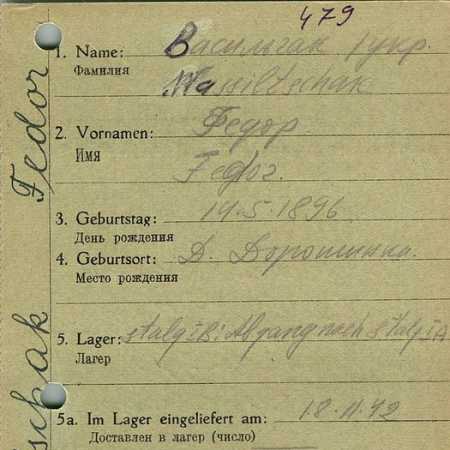 479
1. Name: Васильчак /укр.
Фамилия Wassiltschak
2. Vornamen: Федор
Имя Fedor.
3. Geburtstag: 14.5.1896
День рождения
4. Geburtsort: Д. Ворошинка.
Место рождения
5. Lager: Stalg IB: Abgang nach Stalg IA
Лагер
5a. Im Lager eingeliefert am: 18.11.42
Доставлен в лагер (число)
Fedor
schak